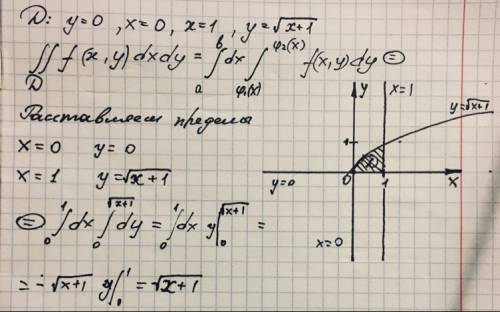 D: y=0 , x=0, x=1 , y=√(x+1)
∬_D f(x,y)dxdy = ∫_a^b dx ∫_{φ1(x)}^{φ2(x)} f(x,y)dy ⊜
Расставляем пределы
x=0 y=0
x=1 y=√(x+1)
⊜ ∫_0^1 dx ∫_0^{√(x+1)} dy = ∫_0^1 dx y|_0^{√(x+1)} =
= √(x+1) y|^1 = √(x+1)
y
x=1
y=√(x+1)
1
D
y=0
0
1
x
x=0